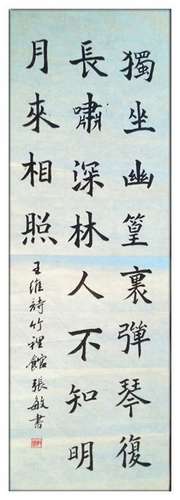 獨坐幽篁裏彈琴復
長嘯深林人不知明
月來相照
王維詩竹裡館張敏書